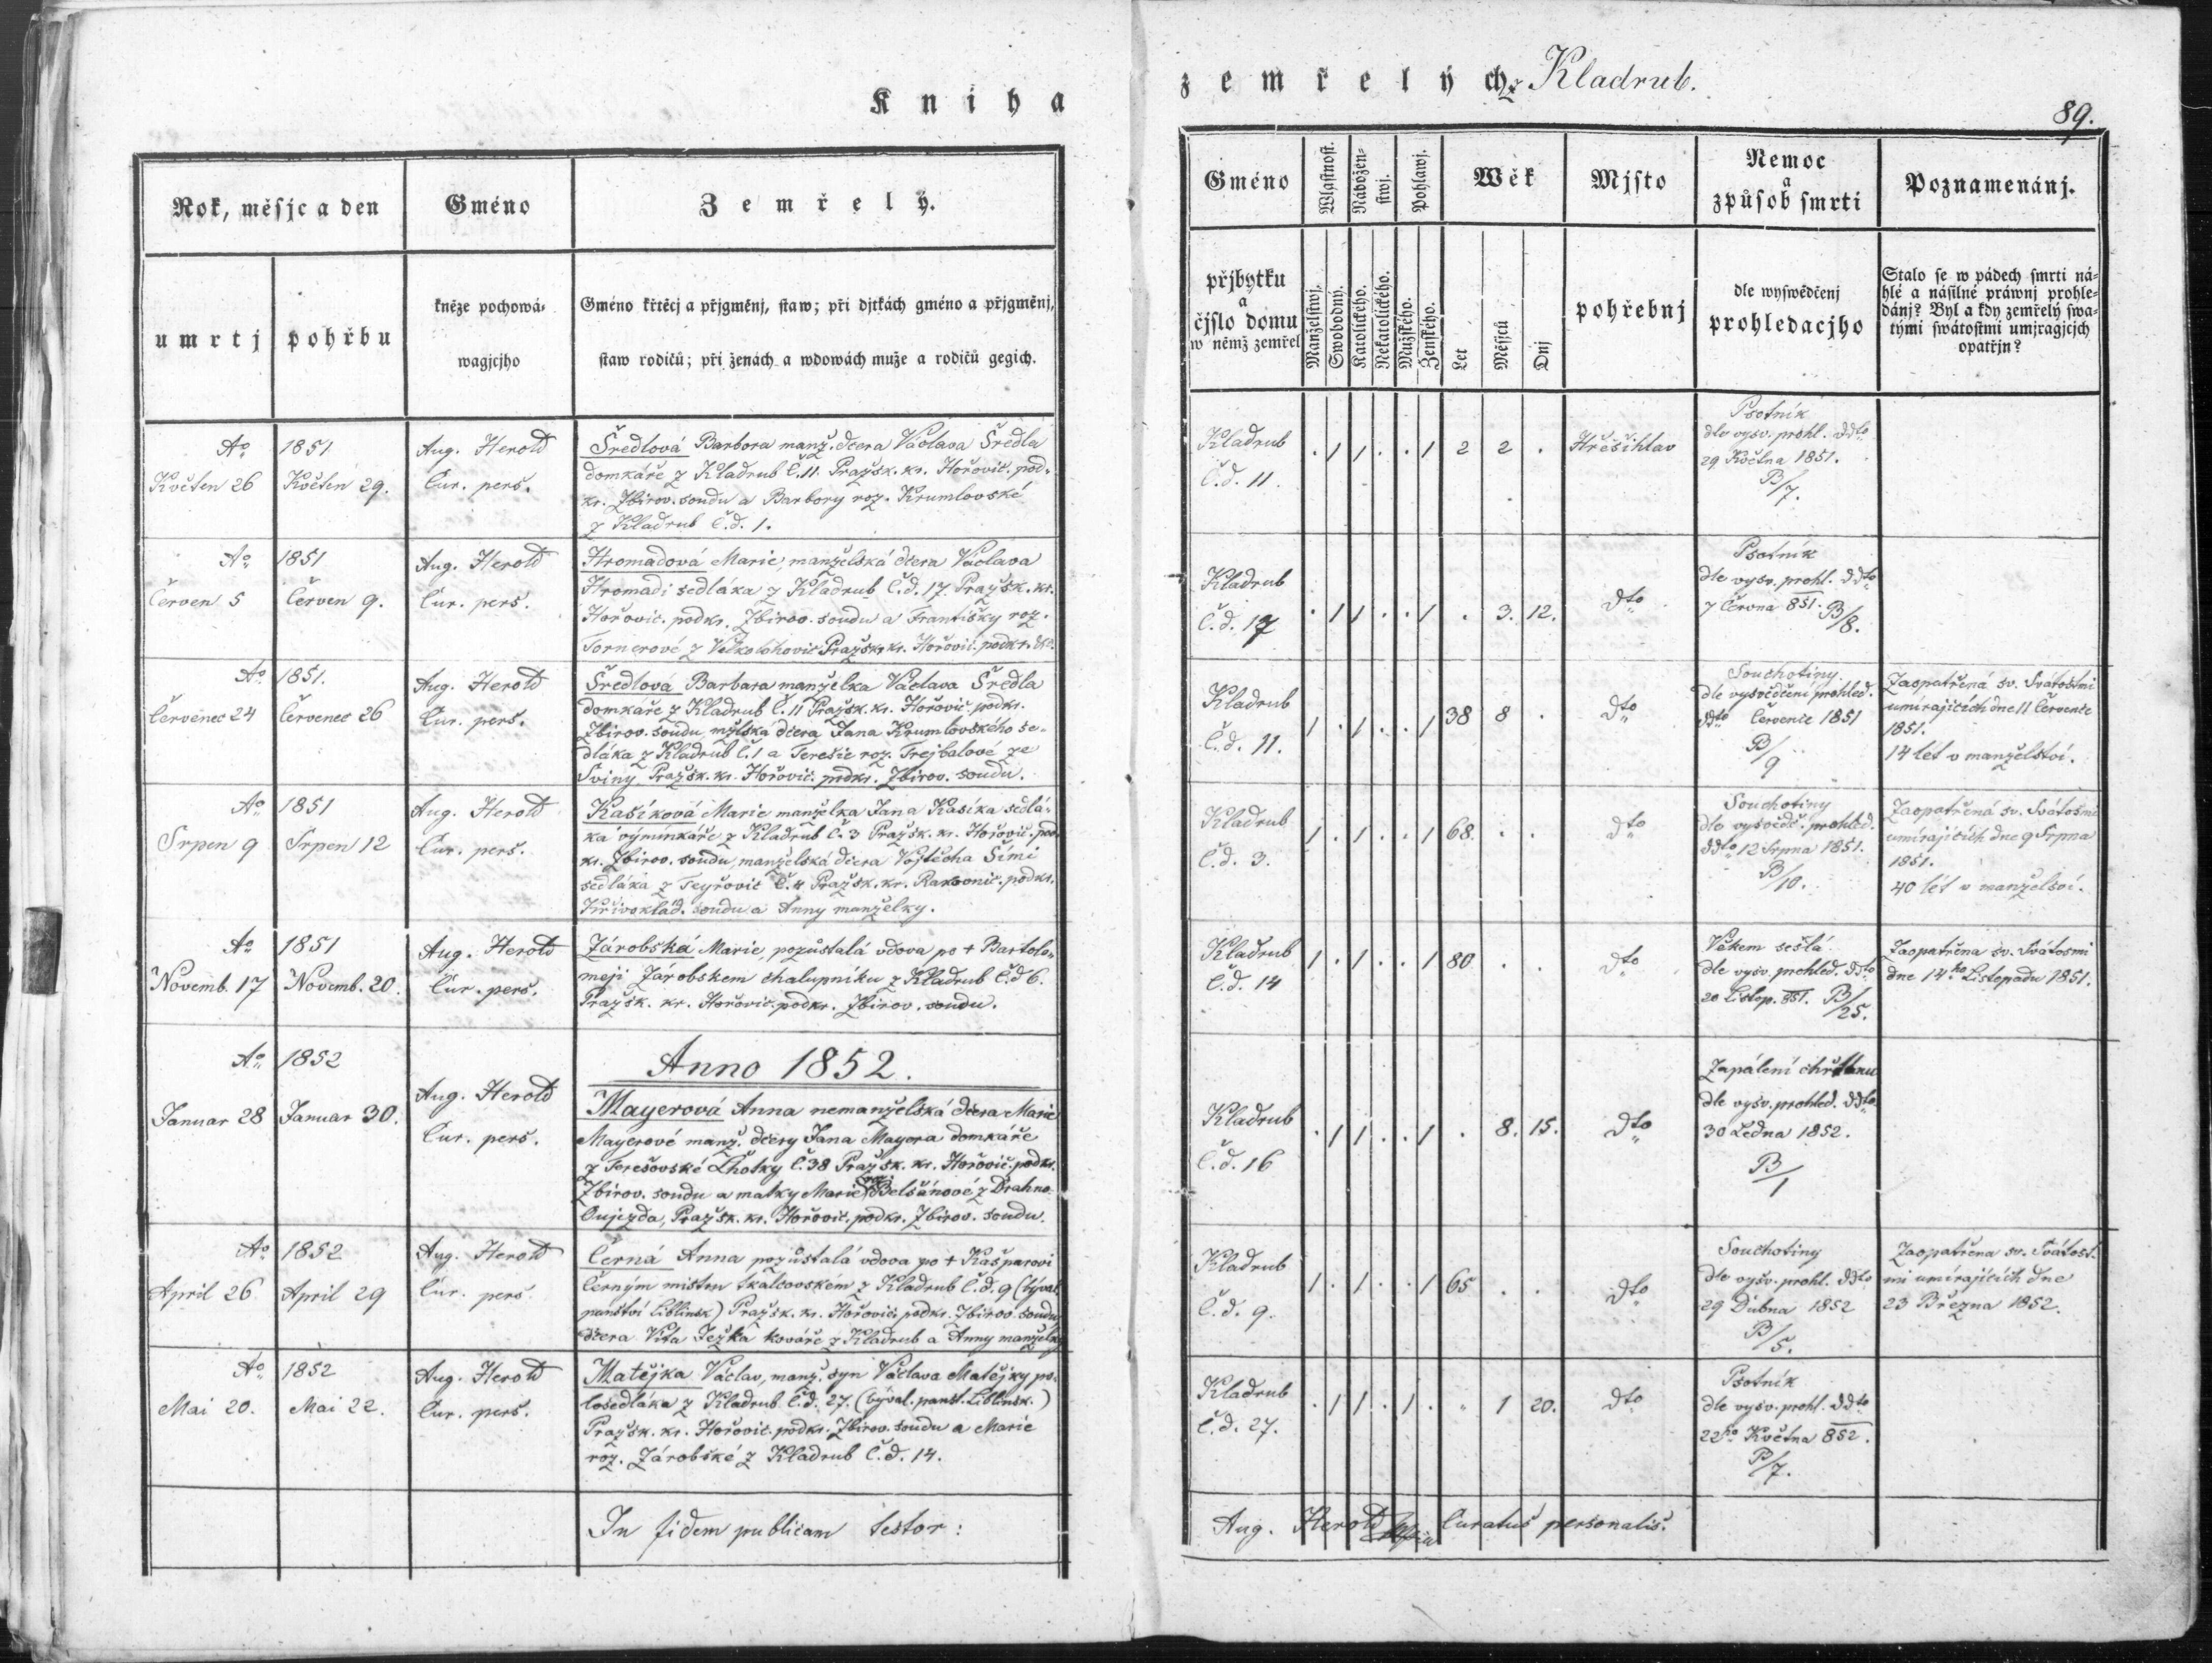 Kniha
Rok, měsjc a den
umrtj
pohřbu
Gméno
kněze pochowá-
wagjcjho
Zemřelý.
Gméno křtěcj a přjgměnj, staw; při djtkách gméno a přjgměnj,
staw rodičů; při ženách a wdowách muže a rodičů gegich.
Ao 1851
Květen 26 Květen 29.
Aug. Herold
Cur. pers.
Šredlová Barbora manž. dcera Václava Šredla
domkáře z Kladrub č. 11. Pražsk. kr. Hořovic. pod-
kr. Zbirov. soudu a Barbory roz. Krumlovské
z Kladrub č.d. 1.
Ao 1851
Červen 5 Červen 9.
Aug. Herold
Cur. pers.
Hromadová Marie, manželská dcera Václava
Hromadi sedláka z Kladrub č.d. 17. Pražsk. kr.
Hořovic. podkr. Zbirov. soudu a Františky roz.
Tornerové z Pražsk. kr. Hořovic. podkr.
Ao 1851.
Červenec 24 Červenec 26
Aug. Herold
Cur. pers.
Šredlová Barbara manželka Václava Šredla
domkáře z Kladrub č. 11 Pražsk. kr. Hořovic. podkr.
Zbirov. soudu, mžlská dcera Jana Krumlovského se-
dláka z Kladrub č. 1 a Terešie roz. Trejbalové ze
Sviny Pražsk. kr. Hořovic. podkr. Zbirov. soudu.
Ao 1851
Srpen 9 Srpen 12
Aug. Herold
Cur. pers.
Kasíková Marie manželka Jana Kasíka sedlá-
ka výminkáře z Kladrub č. 3 Pražsk. kr. Hořovic. pod
kr. Zbirov. soudu, manželská dcera Vojtěcha Šími
sedláka z Teyřovic č. 4 Pražsk. kr. Rakovnic. podkr.
Křivoklád. soudu a Anny manželky.
Ao 1851
Novemb. 17 Novemb. 20.
Aug. Herold
Cur. pers.
Zárobská Marie, pozůstalá vdova po + Bartolo-
meji Zárobskem chalupníku z Kladrub č.d 6.
Pražsk. kr. Hořovic. podkr. Zbirov. soudu.
Ao 1852
Januar 28 Januar 30.
Aug. Herold
Cur. pers.
Anno 1852.
Mayerová Anna nemanželská dcera Marie
Mayerové manž. dcery Jana Mayera domkáře
z Terešovské Lhotky č. 38 Pražsk. kr. Hořovic. podkr.
Zbirov. soudu a matky Marie roz. Belšánové z Drahno-
Oujezda, Pražsk. kr. Hořovic. podkr. Zbirov. soudu.
Ao 1852
April 26 April 29
Aug. Herold
Cur. pers.
Černá Anna pozůstalá vdova po + Kašparovi
Černým mistru tkalcovském z Kladrub č.d. 9 (býval.
panství Liblinsk.) Pražsk. kr. Hořovic. podkr. Zbirov. soudu
dcera Víta Ježka kováře z Kladrub a Anny manželky
Ao 1852
Mai 20. Mai 22.
Aug. Herold
Cur. pers.
Matějka Václav, manž. syn Václava Matějky po-
losedláka z Kladrub č.d. 27. (býval. panst. Liblinsk.)
Pražsk. kr. Hořovic. podkr. Zbirov. soudu a Marie
roz. Zárobské z Kladrub č.d. 14.
In fidem publicam testor:
zemřelých z Kladrub.
89.
Gméno
přjbytku
a
čjslo domu
w němž zemřel
Wlastnost.
Manželstwj.
Swobodný.
Nábožen-
stwj.
Katolického.
Nekatolického.
Pohlawj.
Mužského.
Ženského.
Wěk
Let
Měsjců
Dnj
Mjsto
pohřebnj
Nemoc
a
způsob smrti
dle wyswědčenj
prohledacjho
Poznamenánj.
Stalo se w pádech smrti ná-
hlé a násilné práwnj prohle-
dánj? Byl a kdy zemřelý swa-
tými swátostmi umjragjcjch
opatřjn?
Kladrub
č.d. 11.
. 1 1 . . 1 2 2 .
Hřešihlav
Psotník
dle vysv. prohl. ddto
29 Května 1851.
B/7.
Kladrub
č.d. 17
. 1 1 . . 1 . 3. 12.
dto
Psotník
dle vysv. prohl. ddto
7 Června 851. B/8.
Kladrub
č.d. 11.
1 . 1 . . 1 38 8 .
dto
Souchotiny.
dle vysvědčení prohled.
ddto Července 1851
B/9
Zaopatřená sv. Svátostmi
umírajících dne 11 Července
1851.
14 let v manželství.
Kladrub
č.d. 3.
1 . 1 . . 1 68. . .
dto
Souchotiny
dle vysvědč. prohled.
ddto 12 Srpna 1851.
B/10.
Zaopatřená sv. Svátosmi
umírajících dne 9 Srpna
1851.
40 lét v manželsví.
Kladrub
č.d. 14
1 . 1 . . 1 80 . .
dto
Věkem sešlá
dle vysv. prohled. ddto
20 Listop. 851. B/25.
Zaopatřena sv. Svátosmi
dne 14ho Listopadu 1851.
Kladrub
č.d. 16
. 1 1 . . 1 . 8. 15.
dto
Zapálení chřtánu
dle vysv. prohled. ddto
30 Ledna 1852.
B/1
Kladrub
č.d. 9.
1 . 1 . . 1 65 . .
dto
Souchotiny
dle vysv. prohl. ddto
29 Dubna 1852
B/5.
Zaopatřena sv. Svátost-
mi umírajících dne
23 Března 1852.
Kladrub
č.d. 27.
. 1 1 . 1 . . 1 20.
dto
Psotník
dle vysv. prohl. ddto
22ho Května 852.
B/7.
Aug. Herold Curatus personalis.